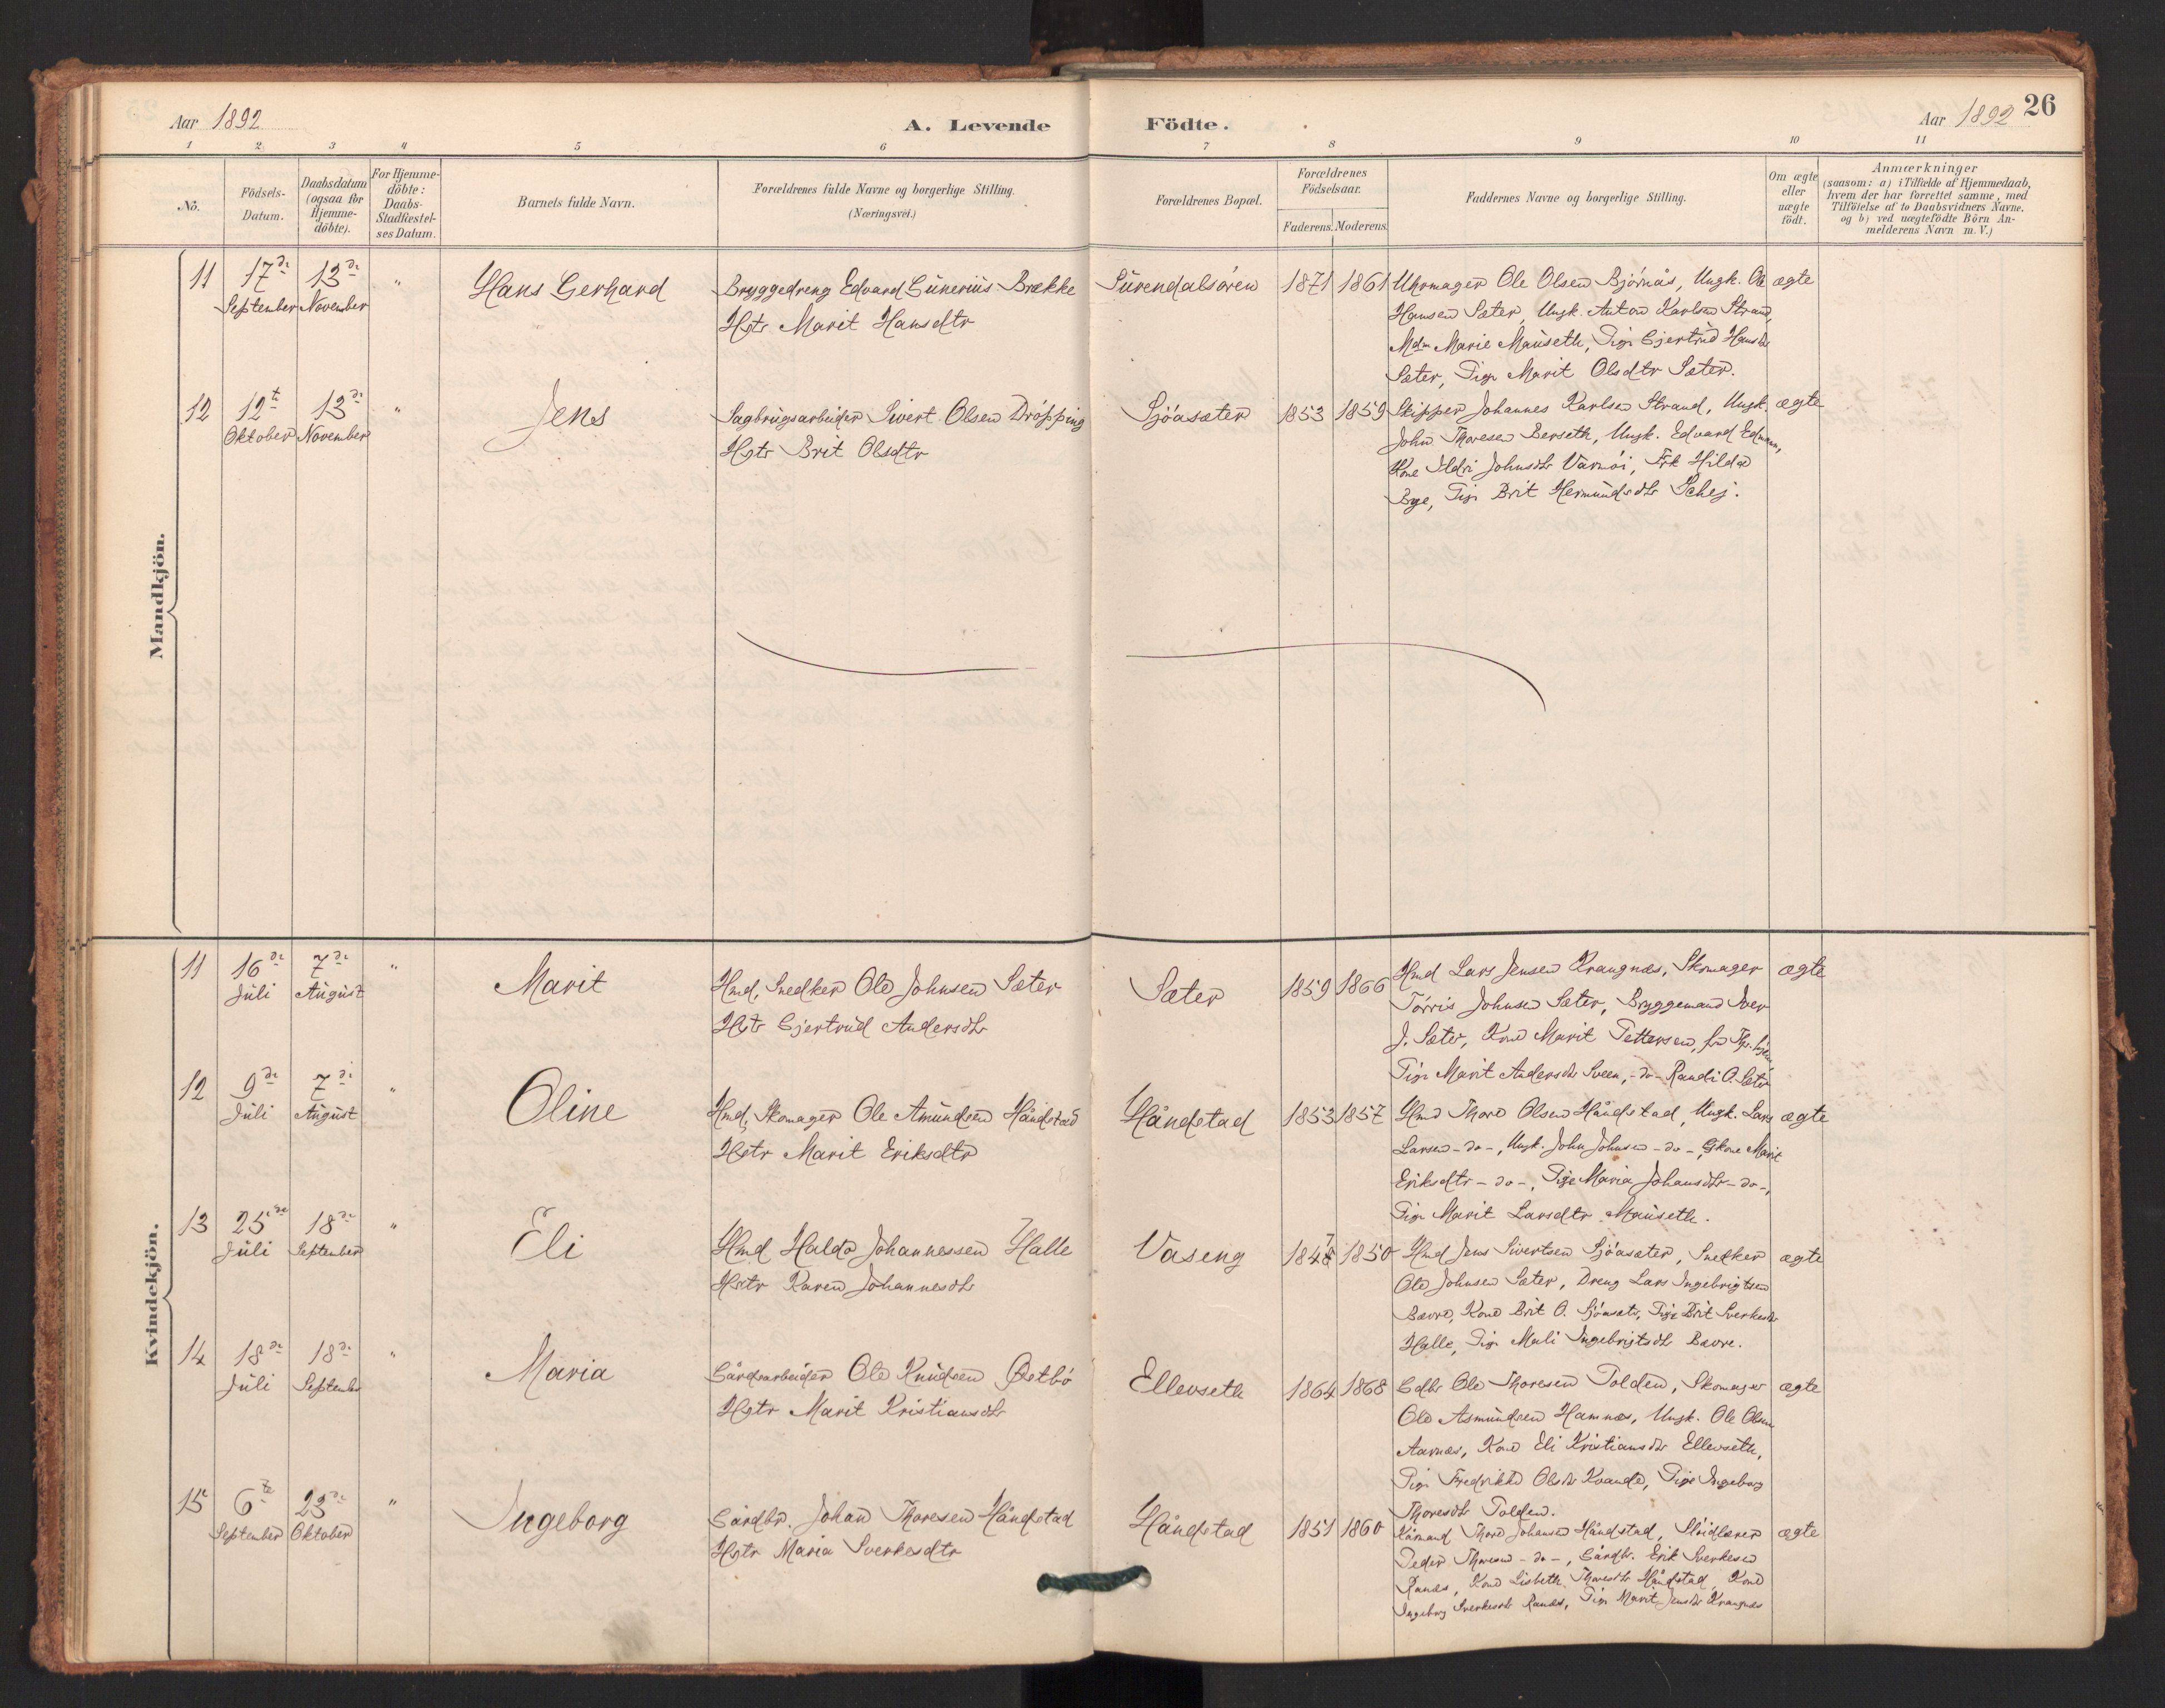 Aar 1892
A. Levende Födte.
Aar 1892 26
1 2 3 4 5 6 7 8 9 10 11
No.
Födsels-Datum.
Daabsdatum (ogsaa for Hjemme-döbte).
For Hjemme-döbte: Daabs-Stadfæstel-ses Datum.
Barnets fulde Navn.
Forældrenes fulde Navne og borgerlige Stilling.
(Næringsvei.)
Forældrenes Bopæl.
Forældrenes Födselsaar.
Faderens. Moderens.
Faddernes Navne og borgerlige Stilling.
Om ægte eller uægte födt.
Anmærkninger
(saasom: a) i Tilfælde af Hjemmedaab,
hvem der har forrettet samme, med
Tilföielse af to Daabsvidners Navne,
og b) ved uægtefödte Börn An-
melderens Navn m. V.)
Mandkjön.
11 17de September 13de November " Hans Gerhard
Bryggedreng Edvard Gunerius Brække
Hstr Marit Hansdtr
Surendalsøren 1871 1861
Uhrmager Ole Olsen Bjørnås, Ungk. Ole
Hansen Sæter, Ungk. Anton Karlsen Strand,
Mdm Marie Mauseth, Pige Gjertrud Hansdtr
Sæter, Pige Marit Olsdtr Sæter.
ægte
12 12te Oktober 13de November " Jens
Sagbrugsarbeider Sivert Olsen Drøpping
Hstr Brit Olsdtr
Sjøasæter 1853 1859
Skipper Johannes Karlsen Strand, Ungk.
John Thoresen Berseth, Ungk. Edvard
Kone Ildri Johnsdtr Värnøi, Frk Hilda
Bye, Pige Brit Hermundsdtr Schej.
ægte
Kvindekjön.
11 16de Juli 7de August " Marit
Hmd, Snedker Ole Johnsen Sæter
Hstr Gjertrud Andersdtr
Sæter 1859 1866
Hmd Lars Jensen Krangnæs, Skomager
Tørris Johnsen Sæter, Bryggemand Iver
J. Sæter, Kone Marit Pettersen,
Pige Marit Andersdtr Sveen, -do- Randi O. Sæter
ægte
12 9de Juli 7de August " Oline
Hmd, Skomager Ole Amundsen Håndstad
Hstr Marit Eriksdtr
Håndstad 1853 1857
Hmd Thore Olsen Håndstad, Ungk. Lars
Larsen -do-, Ungk. John Johnsen -do-, Gkone Marit
Eriksdtr -do-, Pige Maria Johansdtr -do-,
Pige Marit Larsdtr Mauseth.
ægte
13 25de Juli 18de September " Eli
Hmd Haldo Johannessen Halle
Hstr Karen Johannesdtr
Vaseng 1847 1850
Hmd Jens Sivertsen Sjøasæter, Snedker
Ole Johnsen Sæter, Dreng Lars Ingebrigtsen
Bævre, Kone Brit O. Sjøasæter, Pige Brit Sverkesdtr
Halle, Pige Mali Ingebrigtsdtr Bævre.
ægte
14 18de Juli 18de September " Maria
Gårdsarbeider Ole Knudsen Østbø
Hstr Marit Kristiansdtr
Ellevseth 1864 1868
Gdbr Ole Thoresen Polden, Skomager
Ole Asmundsen Hamnæs, Ungk. Ole Olsen
Aarnæs, Kone Eli Kristiansdtr Ellevseth,
Pige Fredrikke Olsdtr Kvande, Pige Ingeborg
Thoresdtr Polden.
ægte
15 6te September 23de Oktober " Ingeborg
Gårdbr. Johan Thoresen Håndstad
Hstr Maria Sverkesdtr
Håndstad 1851 1860
Kårmand Thore Johansen Håndstad, Sløidlærer
Peder Thoresen -do-, Gårdbr. Erik Sverkesen
Ranæs, Kone Lisbeth Thoresdtr Håndstad, Kone
Ingeborg Sverkesdtr Ranæs, Pige Marit Jensdtr Krangnæs
ægte